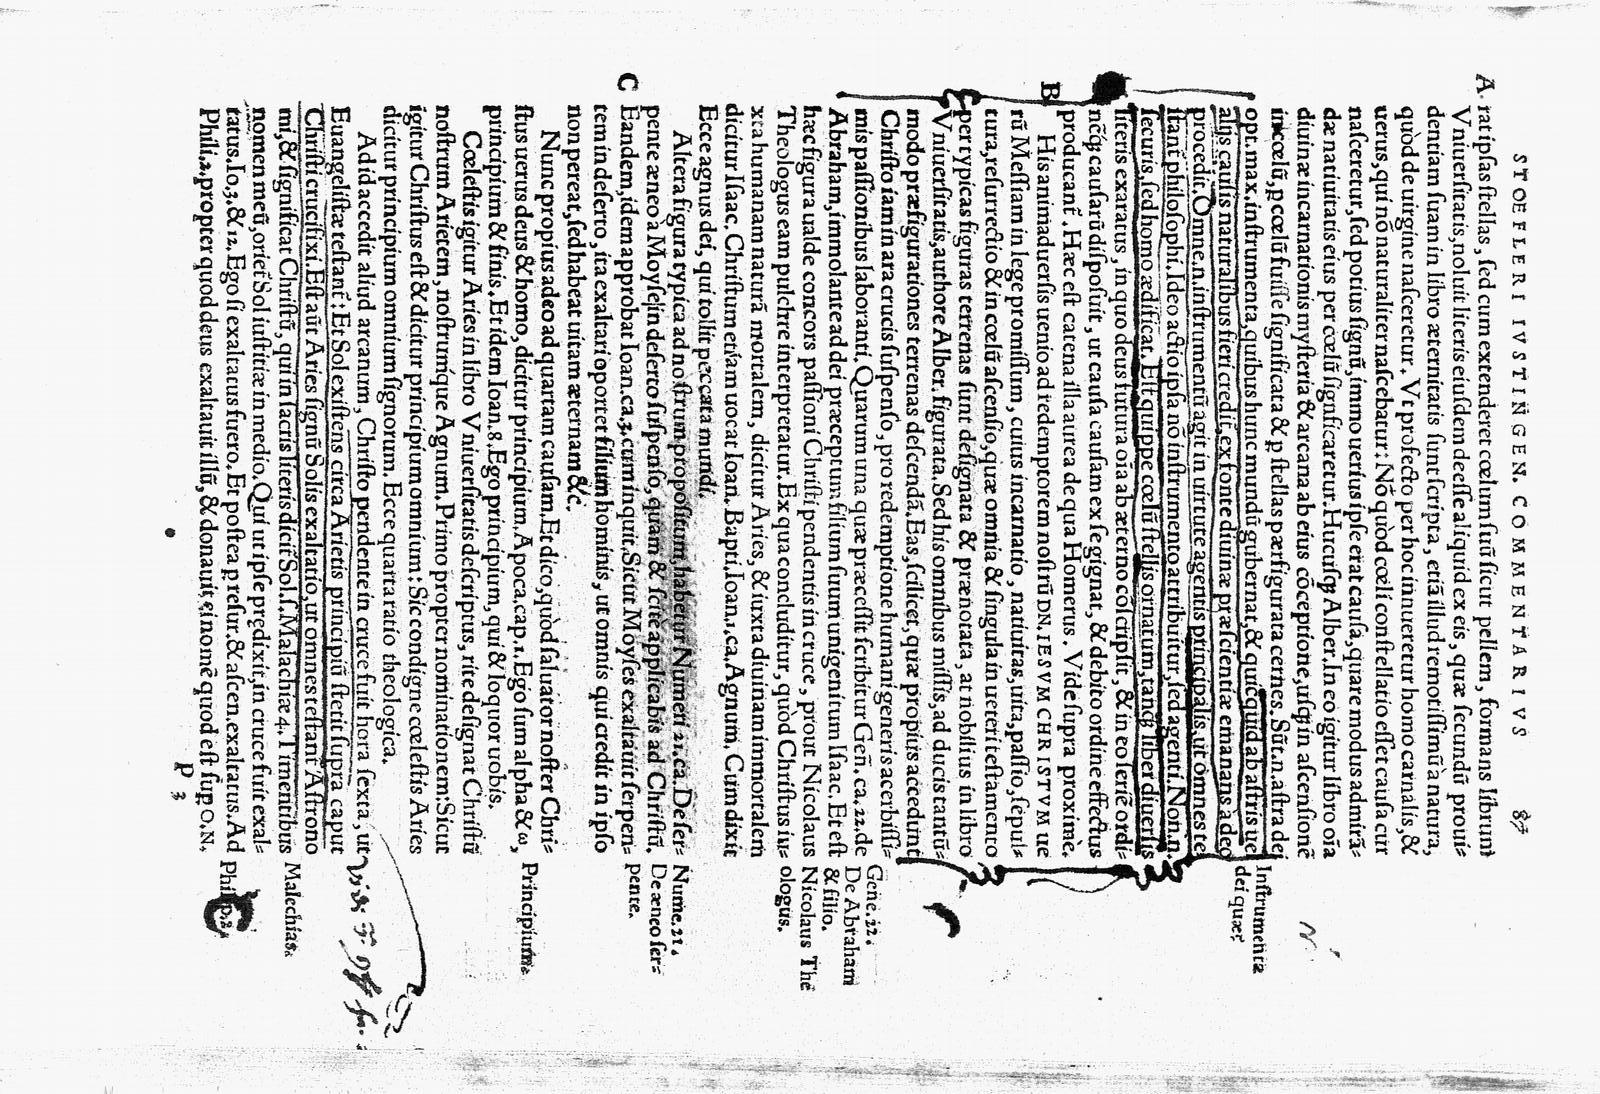 STOEFLERI IVSTINGEN. COMMENTARIVS 87
A. rat ipsas stellas, sed cum extenderet cœlum suũ sicut pellem, formans librum
Vniuersitatis, noluit literis eiusdem deesse aliquid ex eis, quæ secundũ proui-
dentiam suam in libro æternitatis sunt scripta, etiã illud remotissimũ a natura,
quòd de uirgine nasceretur. Vt profecto per hoc innueretur homo carnalis, &
uerus, qui nõ naturaliter nascebatur: Nõ quòd cœli constellatio esset causa cur
nasceretur, sed potius signũ, immo uerius ipse erat causa, quare modus admirã-
dæ natiuitatis eius per cœlũ significaretur. Hucusq; Alber. In eo igitur libro oĩa
diuinæ incarnationis mysteria & arcana ab eius cõceptione, usq; in ascensionẽ
in cœlũ, p cœlũ fuisse significata & p stellas præfigurata cernes. Sũt.n. astra dei
opt. max. instrumenta, quibus hunc mundũ gubernat, & quicquid ab astris uel
alijs causis naturalibus fieri credit, ex fonte diuinæ præscientiæ emanans adeo
procedit. Omne.n. instrumentũ agit in uirtute agentis principalis, ut omnes te
stant philosophi. Ideo actio ipsa nõ instrumento attribuitur, sed agenti. Non.n.
securis, sed homo ædificat. Est quippe cœlũ stellis ornatum, tanq̃ liber diuersis
literis exaratus, in quo deus futura oĩa ab æterno cõscripsit, & in eo seriẽ ordi-
nẽq; causarũ disposuit, ut causa causam ex se gignat, & debito ordine effectus
producant. Hæc est catena illa aurea de qua Homerus. Vide supra proxime.
B His animaduersis uenio ad redemptorem nostrũ DN. IESVM CHRISTVM ue
rũ Messiam in lege promissum, cuius incarnatio, natiuitas, uita, passio, sepul-
tura, resurrectio & in cœlũ ascensio, quæ omnia & singula in ueteri testamento
per typicas figuras terrenas sunt designata & prænotata, at nobilius in libro
Vniuersitatis, authore Alber. figurata. Sed his omnibus missis, ad ducis tantũ-
modo præfigurationes terrenas descendã. Eas, scilicet, quæ propius accedunt
Christo iam in ara crucis suspenso, pro redemptione humani generis acerbissi-
mis passionibus laboranti. Quarum una quæ præcessit scribitur Geñ. ca. 22. de
Abraham, immolante ad dei præceptum filium suum unigenitum Isaac. Et est
hæc figura ualde concors passioni Christi pendentis in cruce, prout Nicolaus
Theologus eam pulchre interpretatur. Ex qua concluditur, quòd Christus iu-
xta humanam naturã mortalem, dicitur Aries, & iuxta diuinam immortalem
dicitur Isaac. Christum etiam uocat Ioan. Bapti. Ioan. 1. ca. Agnum. Cum dixit
Ecce agnus dei, qui tollit peccata mundi.
Altera figura typica ad nostrum propositum, habetur Numeri 21. ca. De ser-
pente æneo à Moyse in deserto suspenso, quam & ferre applicabis ad Christũ.
C Eandem, idem approbat Ioan. ca. 3. cum inquit. Sicut Moyses exaltauit serpen-
tem in deserto, ita exaltari oportet filium hominis, ut omnis qui credit in ipso
non pereat, sed habeat uitam æternam &c.
Nunc propius adeo ad quartam causam. Et dico, quòd saluator noster Chri-
stus uerus deus & homo, dicitur principium. Apoca. cap. 1. Ego sum alpha & ω,
principium & finis. Et idem Ioan. 8. Ego principium, qui & loquor uobis.
Cœlestis igitur Aries in libro Vniuersitatis descriptus, rite designat Christũ
nostrum Arietem, nostrumq́ue Agnum. Primo propter nominationem: Sicut
igitur Christus est & dicitur principium omnium: Sic condigne cœlestis Aries
dicitur principium omnium signorum. Ecce quarta ratio theologica.
Ad id accedit aliud arcanum, Christo pendente in cruce fuit hora sexta, ut
Euangelistæ testant: Et Sol existens circa Arietis principiũ stetit supra caput
Christi crucifixi. Est aũt Aries signũ Solis exaltatio, ut omnes testant Astrono
mi, & significat Christũ, qui in sacris literis dicit Sol. s. Malachiæ 4. Timentibus
nomen meũ, oriet Sol iustitiæ in medio. Qui ut ipse prędixit, in cruce fuit exal-
tatus. Io. 3. & 12. Ego si exaltatus fuero. Et postea p resur. & ascen. exaltatus. Ad
Phili. 2. propter quod deus exaltauit illũ, & donauit ei nomẽ quod est sup O. N.
P 3
Instrumenta
dei quæ.
Gene. 22.
De Abraham
& filio.
Nicolaus The
ologus.
Nume. 21.
De æneo ser-
pente.
Principium.
Malechias.
Philip. 2.